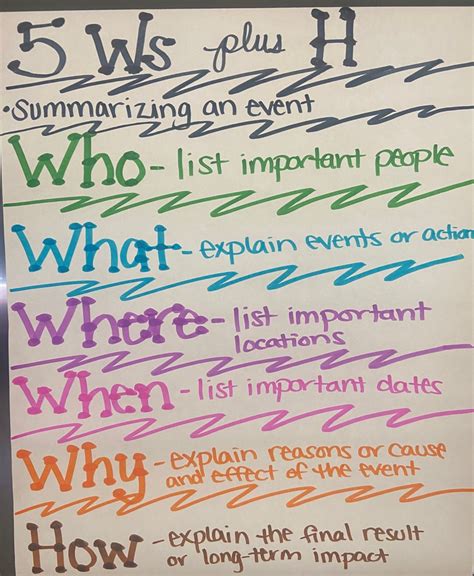 5 Ws plus H
•Summarizing an event
Who - list important people
What - explain events or action
Where - list important
locations
When - list important dates
Why - explain reasons or cause
and effect of the event
How - explain the final result
or long-term impact